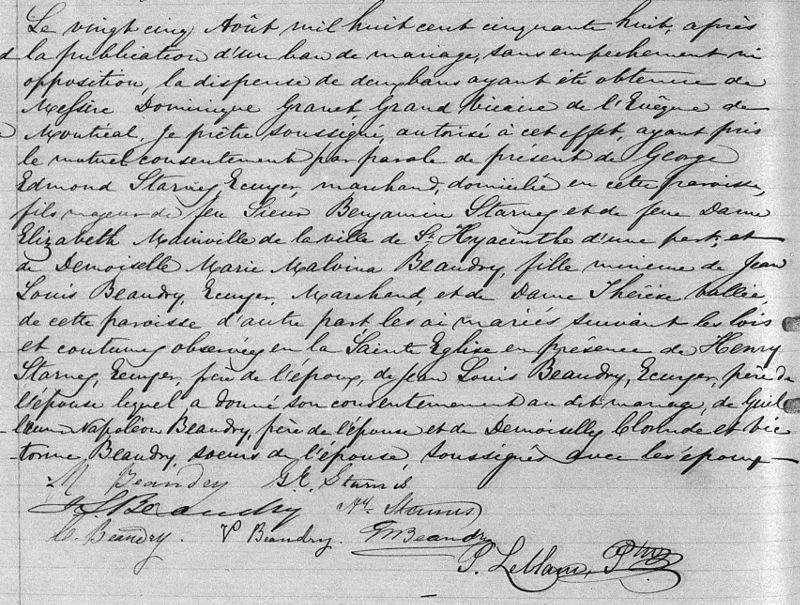 Le vingt cinq Août mil huit cent cinquante huit, après
la publication d'un ban de mariage, sans empechement ni
opposition, la dispense de deux bans ayant été obtenue de
Messire Dominique Granet, Grand vicaire de l'Evêque de
Montréal, Je prêtre soussigné, autorisé à cet effet, ayant pris
le mutuel consentement par parole de présent de George
Edmond Starnes, Ecuyer, marchand, domicilié en cette paroisse,
fils majeur de feu Sieur Benjamin Starnes et de feue Dame
Elizabeth Mainville de la ville de St. Hyacinthe d'une part; et
de Demoiselle Marie Malvina Beaudry, fille mineure de Jean
Louis Beaudry, Ecuyer, Marchand, et de Dame Thérèse Vallée,
de cette paroisse d'autre part, les ai mariés suivant les lois
et coutumes observées en la Sainte Eglise en présence de Henry
Starnes, Ecuyer, frère de l'époux, de Jean Louis Beaudry, Ecuyer, père de
l'épouse lequel a donné son consentement au dit mariage, de Guil
laume Napoléon Beaudry, père de l'épouse et de Demoiselles Clorinde et Vic
torine Beaudry, soeurs de l'épouse, soussignés avec les époux
M Beaudry G. E. Starnes
J L Beaudry Hy. Starnes
C. Beaudry. V Beaudry. GNBeaudry
P. LeBlanc, Ptre